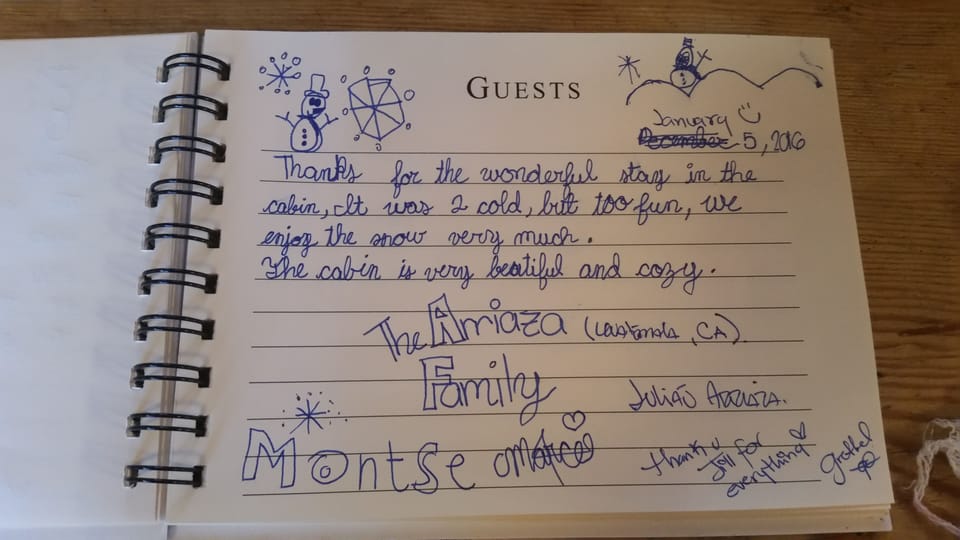 GUESTS
January
December 5, 2016
Thanks for the wonderful stay in the
cabin, It was 2 cold, but too fun, we
enjoy the snow very much.
The cabin is very beatiful and cozy.
The Arriaza (Guatemala, CA).
Family
Julián Arriaza.
Montse
thank u
Jill for
everything